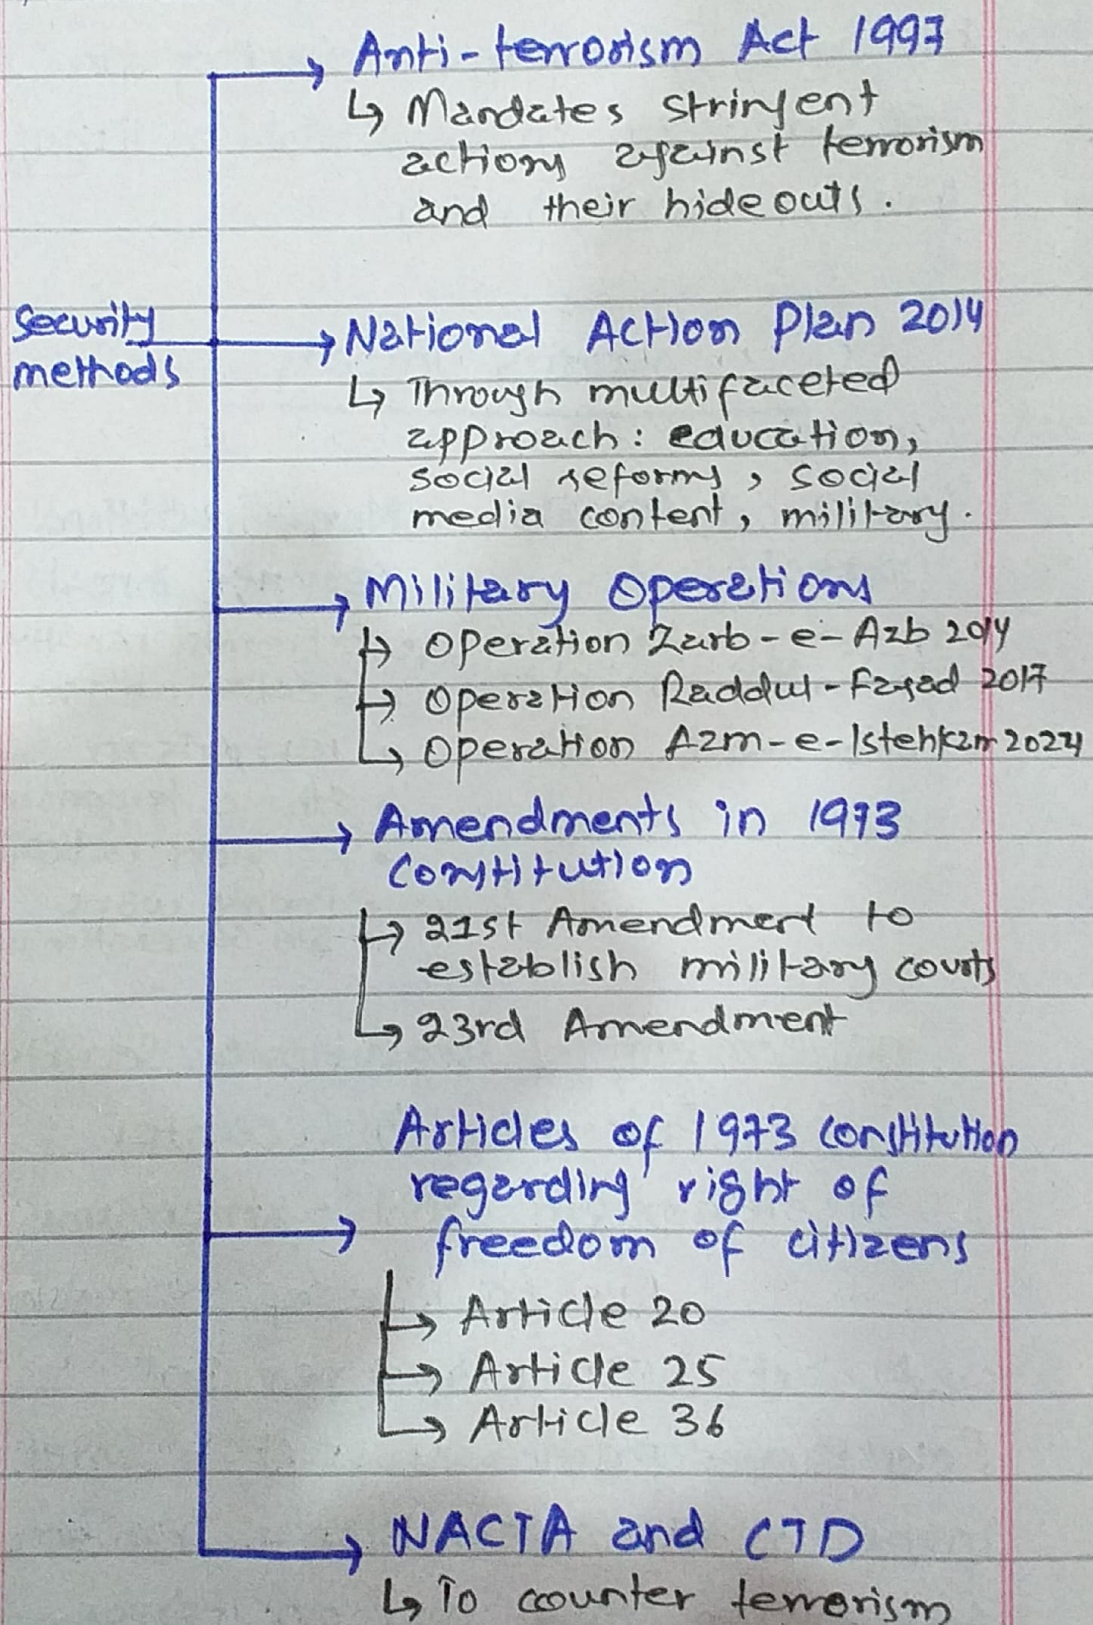 Anti-terrorism Act 1997
↳ Mandates stringent
actions against terrorism
and their hideouts.
Security
methods
National Action Plan 2014
↳ Through multifaceted
approach: education,
social reforms, social
media content, military.
Military Operations
↳ Operation Zarb-e-Azb 2014
↳ Operation Raddul-Fasad 2017
↳ Operation Azm-e-Istehkam 2024
Amendments in 1973
Constitution
↳ 21st Amendment to
establish military courts
↳ 23rd Amendment
Articles of 1973 constitution
regarding right of
freedom of citizens
↳ Article 20
↳ Article 25
↳ Article 36
NACTA and CTD
↳ To counter terrorism